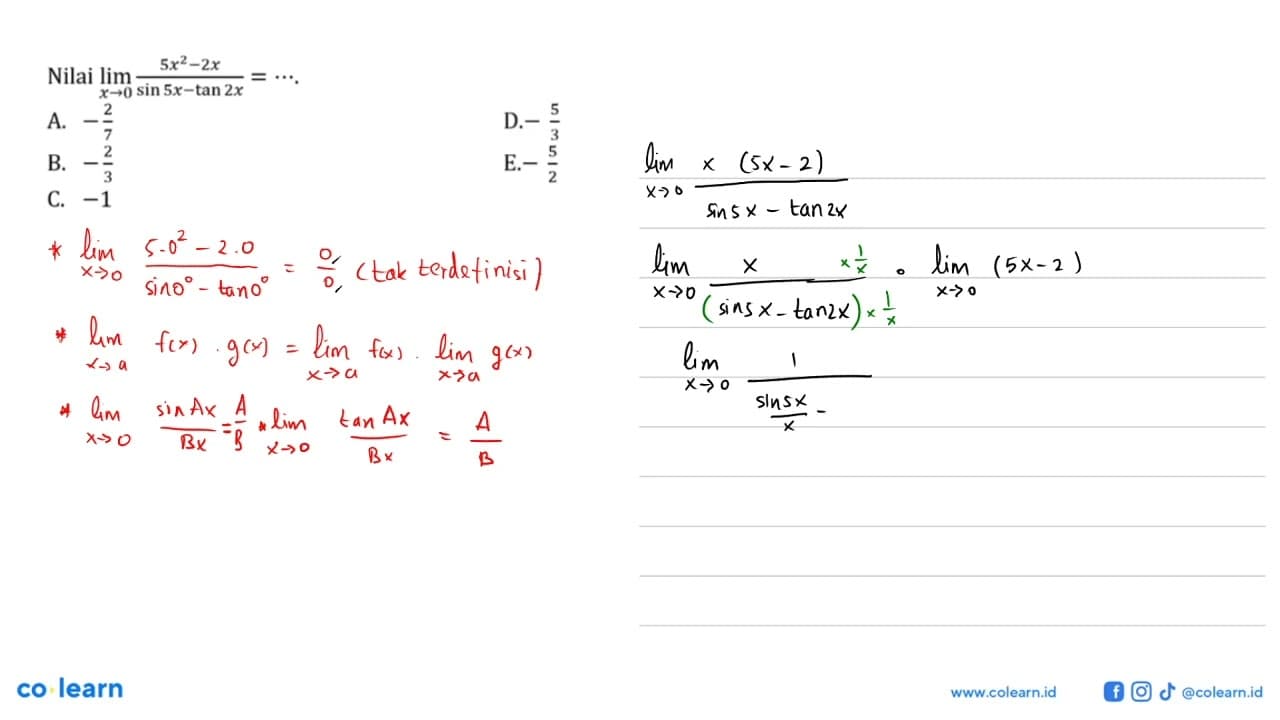 Nilai lim x→0 (5x²−2x)/(sin 5x−tan 2x) = ⋯.
A. −2/7
B. −2/3
C. −1
D.− 5/3
E.− 5/2
* lim x→0 (5.0² − 2.0)/(sin 0° − tan 0°) = 0/0, (tak terdefinisi)
* lim x→a f(x) . g(x) = lim x→a f(x) . lim x→a g(x)
* lim x→0 sin Ax/Bx = A/B * lim x→0 tan Ax/Bx = A/B
lim x→0 x (5x − 2)/(sin 5x − tan 2x)
lim x→0 x × 1/x/((sin 5x − tan 2x) × 1/x) . lim x→0 (5x − 2)
lim x→0 1/(sin 5x/x −
co learn
www.colearn.id
@colearn.id